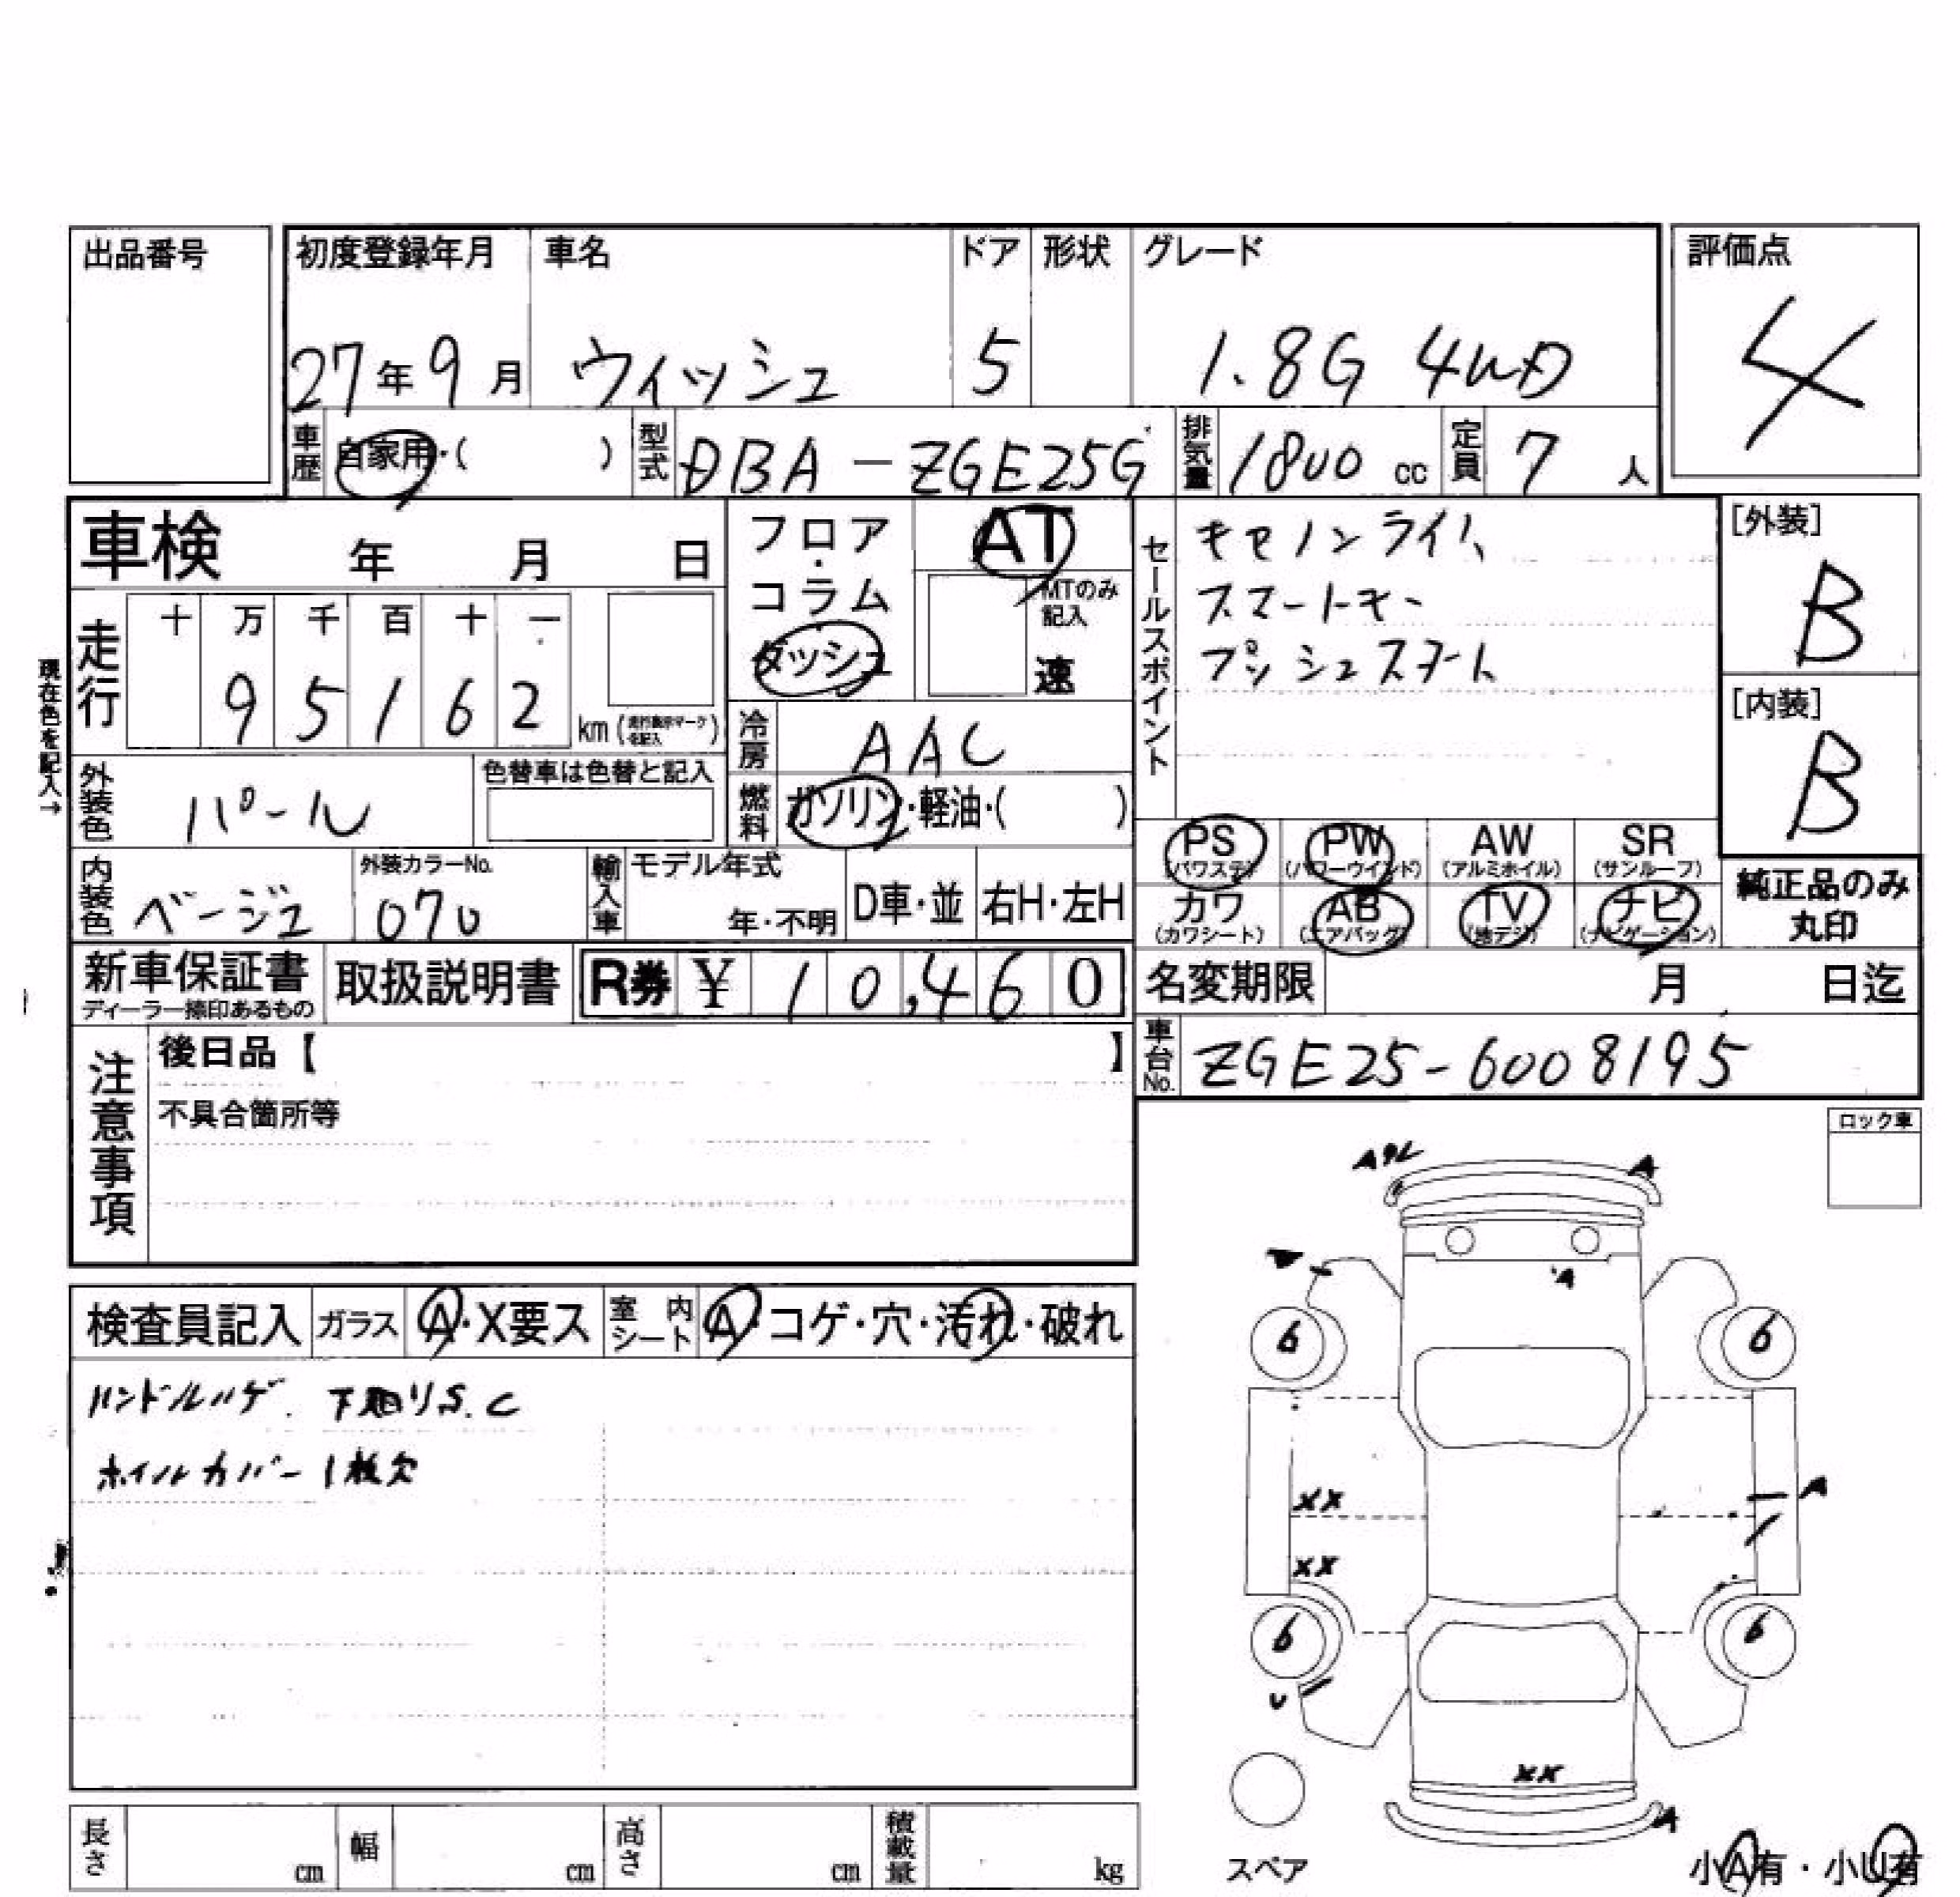 出品番号
初度登録年月 車名 ドア 形状 グレード
27年9月 ウィッシュ 5 1.8G 4WD
評価点
4
車歴 自家用・( ) 型式 DBA-ZGE25G 排気量 1800 cc 定員 7 人
車検 年 月 日
フロア・コラム ダッシュ
AT
MTのみ記入
速
セールスポイント
キセノンライト
スマートキー
プッシュスタート
[外装]
B
[内装]
B
現在色を記入→
走行 十 万 千 百 十 一
9 5 1 6 2 km(走行表示マークを記入)
冷房 AAC
燃料 ガソリン・軽油・( )
外装色 パール 色替車は色替と記入
内装色 ベージュ 外装カラーNo. 070 輸入車 モデル年式 年・不明 D車・並 右H・左H
PS (パワステ) PW (パワーウインド) AW (アルミホイル) SR (サンルーフ)
カワ (カワシート) AB (エアバッグ) TV (地デジ) ナビ (ナビゲーション)
純正品のみ丸印
新車保証書 ディーラー捺印あるもの 取扱説明書 R券 ¥ 10,460
名変期限 月 日迄
車台No. ZGE25-6008195
注意事項
後日品【 】
不具合箇所等
ロック車
検査員記入 ガラス A・X要ス 室内シート A・コゲ・穴・汚れ・破れ
ハンドルハゲ. 下廻りS.C
ホイルカバー1枚欠
A
A
6 6
XX
A
XX
6 6
U
XX
A
スペア
小A有・小U有
長さ cm 幅 cm 高さ cm 積載量 kg